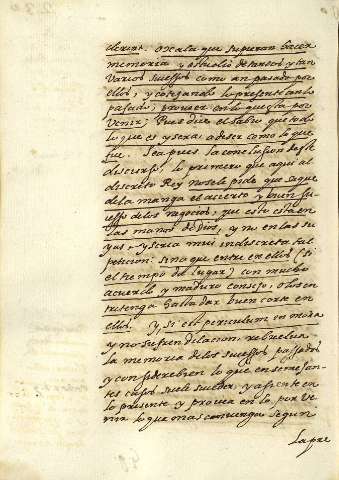 clerunt. oxala que supieran hacer
memoria y estudio de tantos y tan
varios sucessos como an pasado por
ellos, y cotejando lo presente con lo
pasado, proveer en lo que esta por
venir; Pues dice el sabio que todo
lo que es y sera, a de ser como lo que
fue. Sea pues la conclusion deste
discurso, lo primero que aqui al
discreto Rey no se le pide que saque
de la manga el acierto y buen su-
cesso de los negocios, que esto esta en
las manos de Dios, y no en las su
yas, y seria mui indiscreta tal
peticion: sino que entre en ellos (si
el tiempo da lugar) con mucho
acuerdo y maduro consejo,
hasta dar buen corte en
ellos. Y, si est periculum in mora
y no sufren dilacion, rebuelva
la memoria de los sucessos passados
y considere bien lo que en semejan-
tes casos suele suceder, y assiente en
lo presente y provea en lo por ve
nir lo que mas convenga segun
la pre